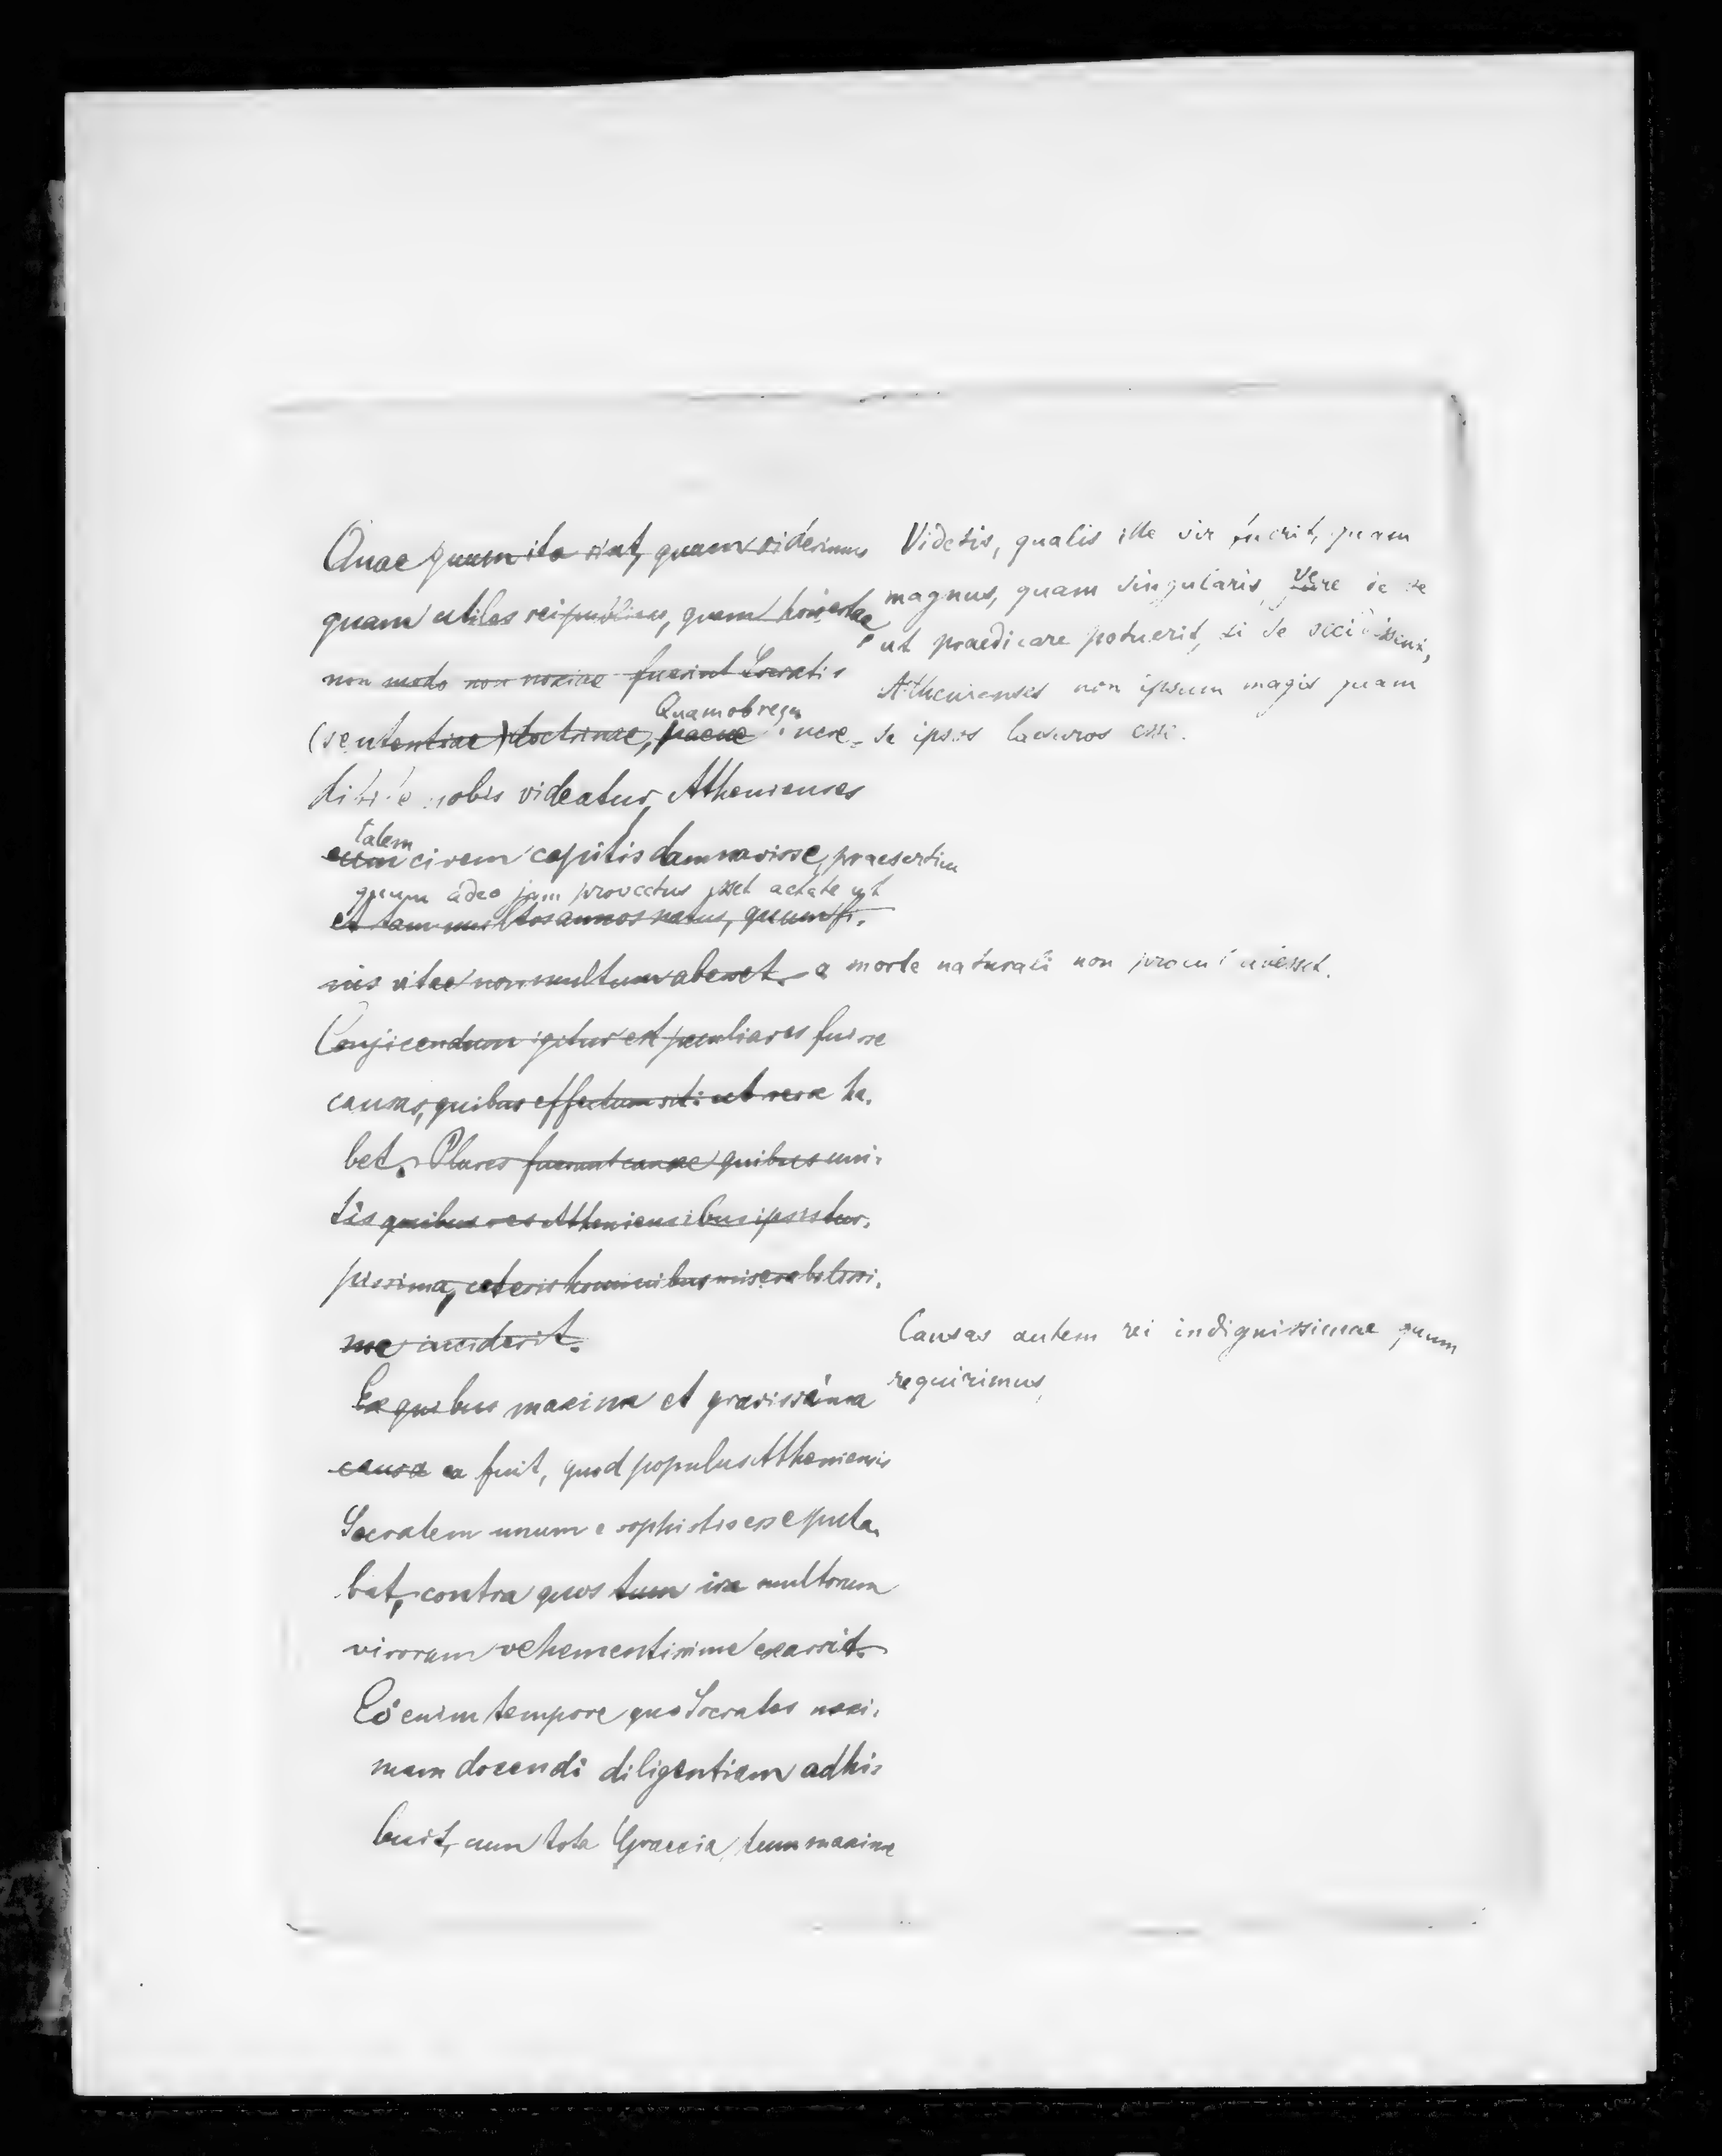 Quae quum ita sint, quum viderimus
quam utiles reipublicae, quam honestae,
non modo non noxiae fuerint Socratis
Quamobrem
(sententiae) doctrinae, paene incre-
dibile nobis videatur, Athenienses
talem
eum civem capitis damnavisse, praesertim
quum adeo jam provectus esset aetate ut
et tam multos annos natus, quum fi-
nis vitae non multum abesset. a morte naturali non procul abesset.
Conjicendum igitur est peculiares fuisse
causas, quibus effectum sit: ut res se ha-
bet. Plures fuerunt causae quibus uni-
tis quibus res Atheniensibus ipsis tur-
pissima, ceteris hominibus miserabilissi-
ma acciderit.
Ex quibus maxima et gravissima
causa ea fuit, quod populus Atheniensis
Socratem unum e sophistis esse puta-
bat, contra quos tum ira multorum
virorum vehementissime exarsit.
Eo enim tempore quo Socrates maxi-
mam docendi diligentiam adhi-
buit, cum tota Graecia, tum maxime
Videtis, qualis ille vir fuerit, quam
magnus, quam singularis, vere de se
ut praedicare potuerit, si se occidissent,
Athenienses non ipsum magis quam
se ipsos laesuros esse.
Causas autem rei indignissimae quum
requirimus,